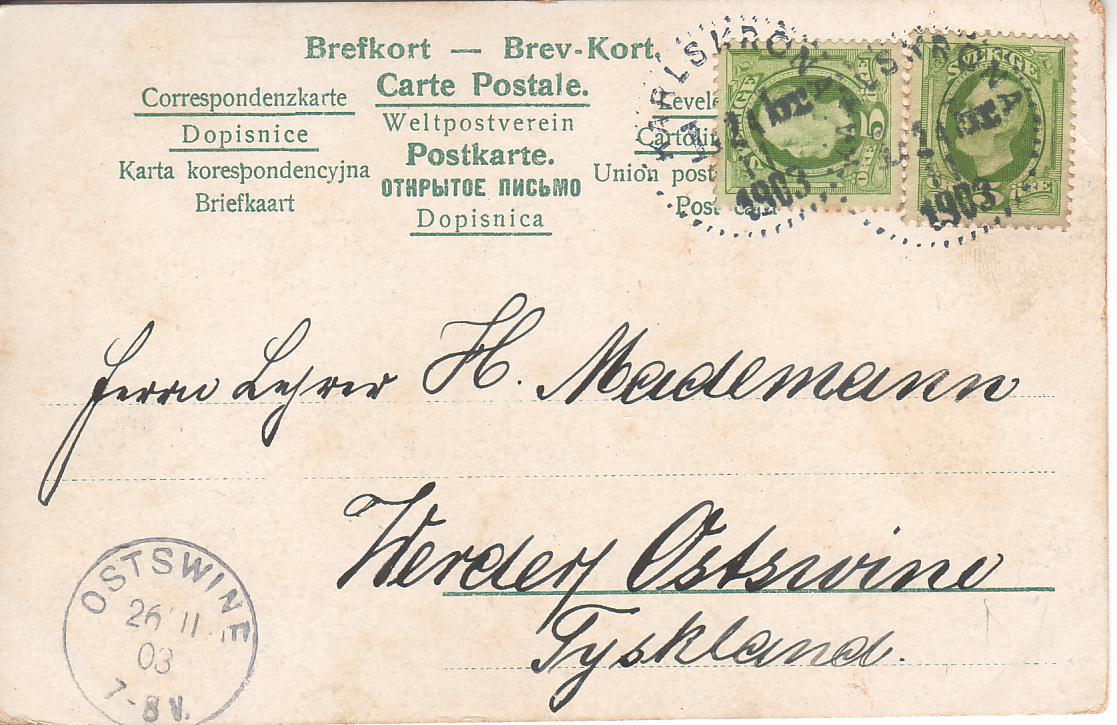 Brefkort — Brev-Kort.
Carte Postale.
Correspondenzkarte
Weltpostverein
Dopisnice
Postkarte.
Karta korespondencyjna
ОТКРЫТОЕ ПИСЬМО
Union post
Briefkaart
Dopisnica
Post card
KARLSKRONA
1903
SVERIGE
KARLSKRONA
1903
Herrn Lehrer H. Mademann
Werder / Ostswine
Tyskland.
OSTSWINE
26 11
03
7-8 V.